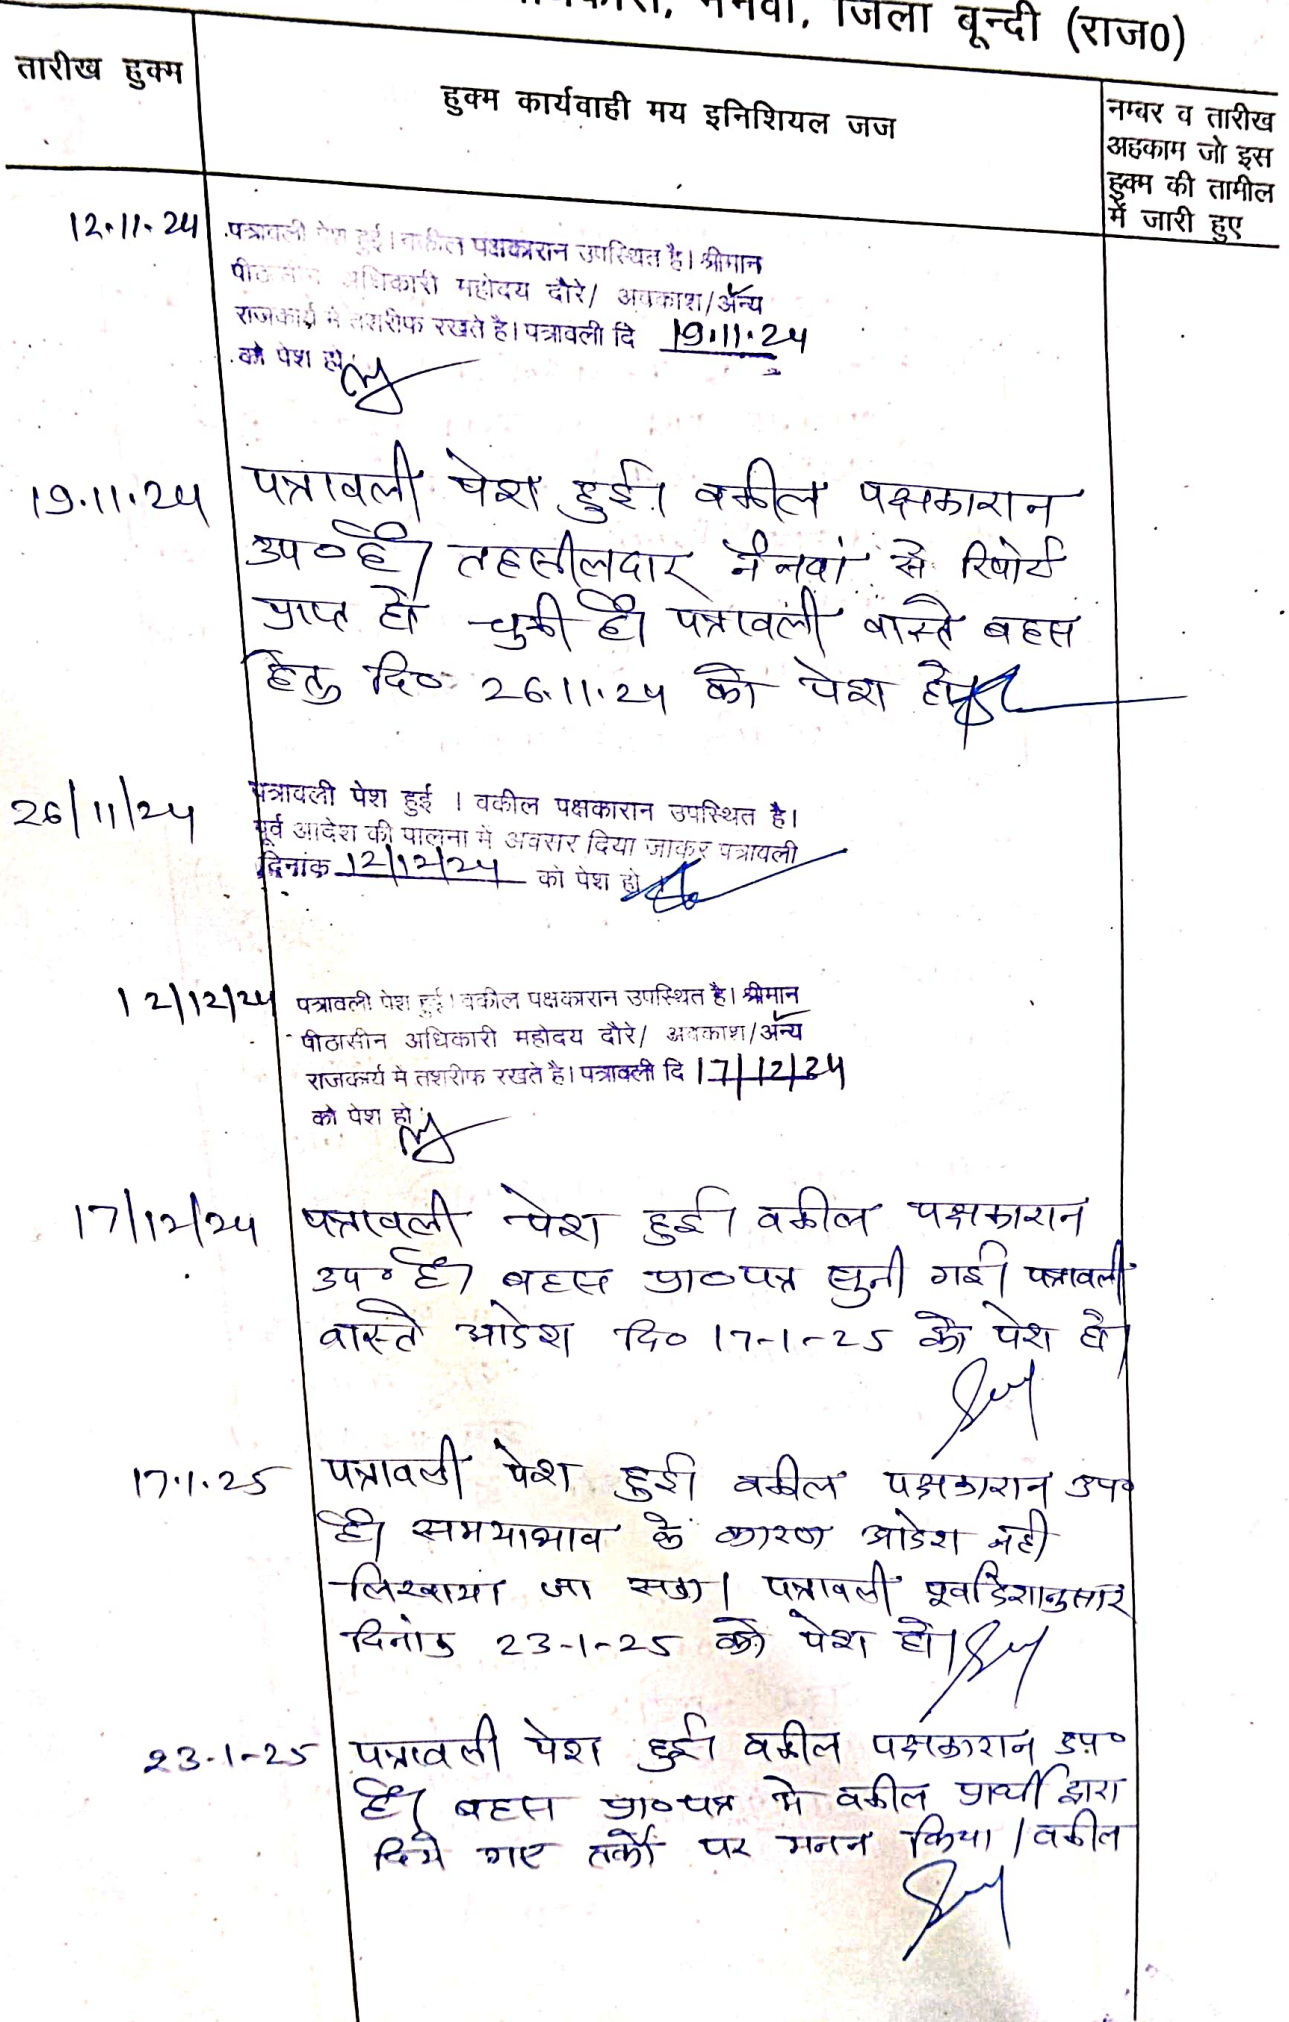 जिला बून्दी (राज0)
तारीख हुक्म
हुक्म कार्यवाही मय इनिशियल जज
नम्बर व तारीख
अहकाम जो इस
हुक्म की तामील
में जारी हुए
12.11.24
पत्रावली पेश हुई। वकील पक्षकारान उपस्थित है। श्रीमान
पीठासीन अधिकारी महोदय दौरे/ अवकाश/अन्य
राजकार्य मे तशरीफ रखते है। पत्रावली दि 19.11.24
को पेश हो
19.11.24
पत्रावली पेश हुई। वकील पक्षकारान
उप० है। तहसीलदार नैनवां से रिपोर्ट
प्राप्त हो चुकी है। पत्रावली वास्ते बहस
हेतु दि० 26.11.24 को पेश हो
26/11/24
पत्रावली पेश हुई । वकील पक्षकारान उपस्थित है।
पूर्व आदेश की पालना मे अवसर दिया जाकर पत्रावली
दिनांक 12/12/24 को पेश हो
12/12/24
पत्रावली पेश हुई। वकील पक्षकारान उपस्थित है। श्रीमान
पीठासीन अधिकारी महोदय दौरे/ अवकाश/अन्य
राजकार्य मे तशरीफ रखते है। पत्रावली दि 17/12/24
को पेश हो
17/12/24
पत्रावली पेश हुई। वकील पक्षकारान
उप० है। बहस प्रा०पत्र सुनी गई। पत्रावली
वास्ते आदेश दि० 17-1-25 को पेश हो।
17.1.25
पत्रावली पेश हुई। वकील पक्षकारान उप०
है। समयाभाव के कारण आदेश नही
लिखाया जा सका। पत्रावली पूर्वादेशानुसार
दिनांक 23-1-25 को पेश हो।
23-1-25
पत्रावली पेश हुई। वकील पक्षकारान उप०
है। बहस प्रा०पत्र मे वकील प्रार्थी द्वारा
दिये गए तर्को पर मनन किया। वकील